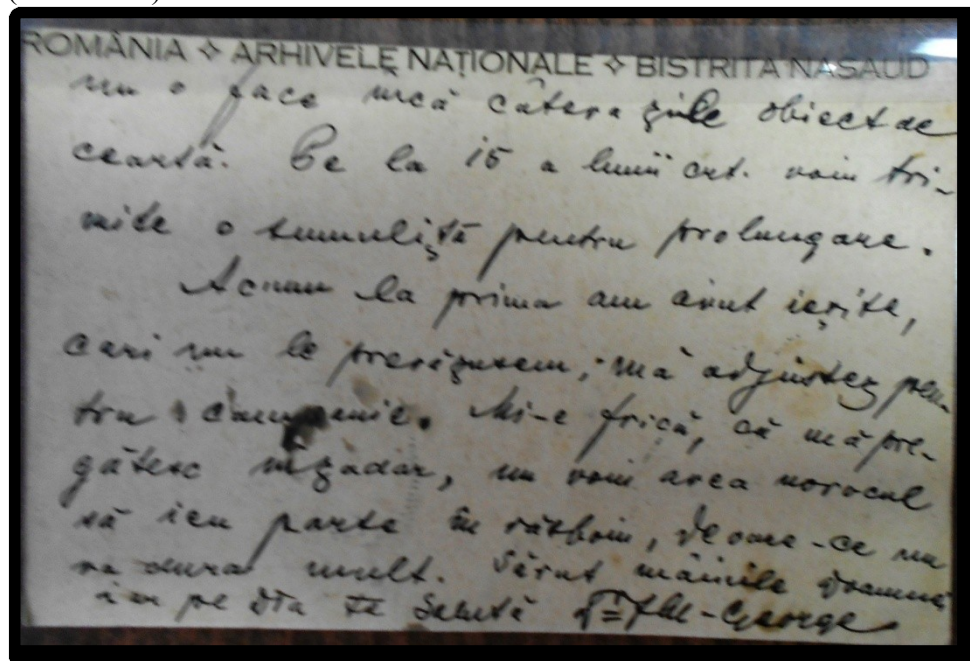 ROMÂNIA ✧ ARHIVELE NAȚIONALE ✧ BISTRITA NASAUD
nu o face încă câteva zile obiect de
ceartă. Pe la 15 a lunii crt. voiu tri-
mite o sumuliță pentru prolungare.
Acum la prima am avut ieșite,
cari nu le prevăzusem; mă adjustez pen-
tru campanie. Mi-e frică, că mă pre-
gătesc înzadar, nu voiu avea norocul
să ieu parte în războiu, deoare-ce nu
va dura mult. Sărut mâinile Doamnei
iar pe Dta te salută George